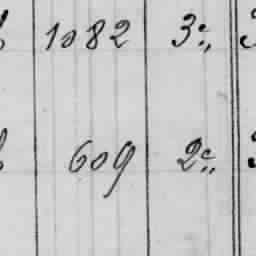 1082 3c„
609 2c„